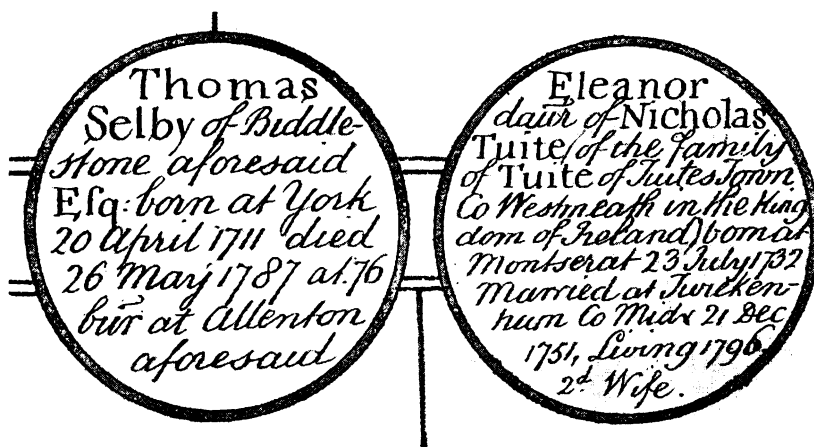 Thomas
Selby of Biddle-
stone aforesaid
Esq: born at York
20 April 1711 died
26 May 1787 at.76
bur at Allenton
aforesaid
Eleanor
daur of Nicholas
Tuite (of the family
of Tuite of Tuites Town
Co Westmeath in the King
dom of Ireland) born at
Montserat 23 July 1732
Married at Twicken-
ham Co Midx 21 Dec
1751, Living 1796.
2d Wife.